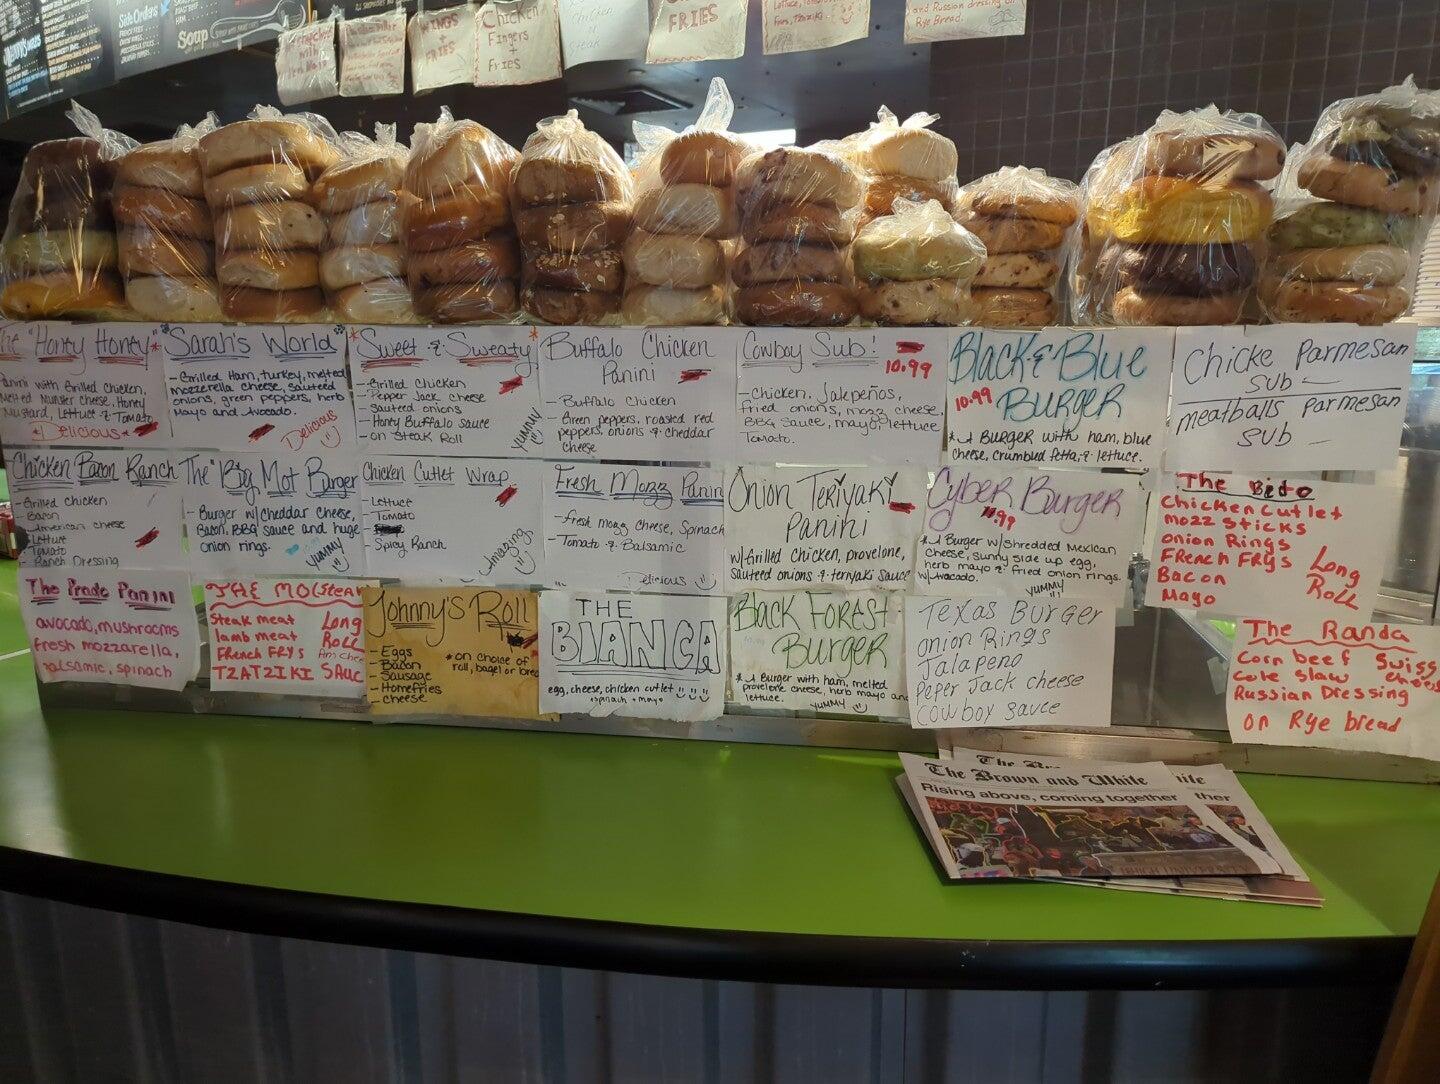 Side Orders
HAM
Soup
WINGS
+
FRIES
Chicken
Fingers
+
FRIES
Chicken
Steak
FRIES
and Russian dressing on
Rye Bread.
The "Honey Honey"
Panini with Grilled Chicken,
Melted Munster Cheese, Honey
Mustard, Lettuce & Tomato
*Delicious*
Sarah's World
- Grilled Ham, turkey, melted
mozzerella cheese, sauteed
onions, green peppers, herb
Mayo and Avocado.
Delicious
*Sweet & Sweaty*
- Grilled Chicken
- Pepper Jack Cheese
- Sauteed onions
- Honey Buffalo sauce
- on Steak Roll
YUMMY
Buffalo Chicken
Panini
- Buffalo Chicken
- Green peppers, roasted red
peppers, onions & cheddar
cheese
Cowboy Sub!
10.99
- Chicken, Jalepeños,
fried onions, mozz cheese,
BBQ sauce, mayo, lettuce
Tomato.
Black & Blue
Burger
10.99
* BURGER with ham, blue
cheese, crumbled fetta, & lettuce.
Chicke Parmesan
SUB
meatballs Parmesan
SUB
Chicken Bacon Ranch
- Grilled Chicken
- Bacon
- American cheese
- Lettuce
- Tomato
- Ranch Dressing
The "Big Mot Burger
- Burger w/cheddar cheese,
Bacon, BBQ sauce and huge
onion rings.
YUMMY
Chicken Cutlet Wrap
- Lettuce
- Tomato
- Spicy Ranch
Amazing
Fresh Mozz Panin
- fresh mozz cheese, Spinach
- Tomato & Balsamic
Delicious
Onion Teriyaki
Panini
w/Grilled chicken, provelone,
sauteed onions & teriyaki sauce
Cyber Burger
.99
* Burger w/shredded Mexican
cheese, sunny side up egg,
herb mayo & fried onion rings.
w/Avocado.
YUMMY
The Bido
Chicken Cutlet
Mozz Sticks
Onion Rings
French Frys
Bacon
Mayo
Long
Roll
The Prado Panini
avocado, mushrooms
fresh mozzarella,
balsamic, spinach
THE MO(Steak
Steak meat
lamb meat
French Frys
TZATZIKI SAUC
Long
Roll
Johnny's Roll
- Eggs
- Bacon
- Sausage
- Homefries
- cheese
*on choice of
roll, bagel or bre
THE
BIANCA
egg, cheese, chicken cutlet
+spinach + mayo
Black Forest
Burger
* Burger with ham, melted
provelone cheese, herb mayo and
lettuce.
YUMMY
Texas Burger
onion Rings
Jalapeno
Peper Jack cheese
Cowboy sauce
The Randa
Corn beef Swiss
Cole slaw
Russian Dressing
on Rye bread
The Brown and White
ite
Rising above, coming together
ther